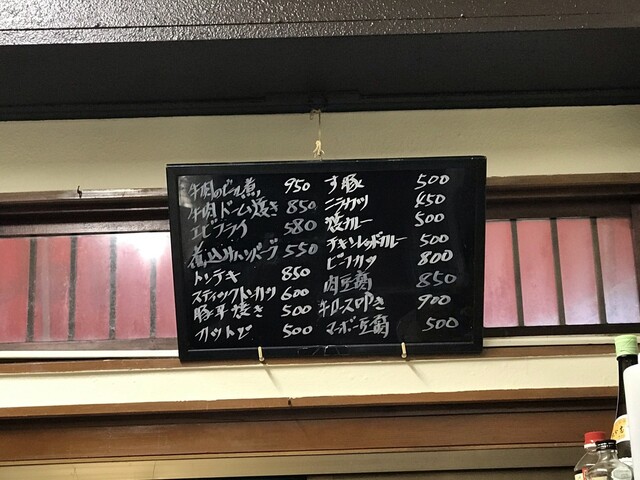 牛肉のビール煮 950
牛肉ドーム焼き 850
エビフライ 580
煮込みハンバーグ 550
トンテキ 850
スティックトンカツ 600
豚平焼き 500
カツトじ 500
す豚 500
ニラカツ 450
焼カレー 500
チキンレッドカレー 500
ビーフカツ 800
肉豆腐 850
牛ロース叩き 900
マーボー豆腐 500